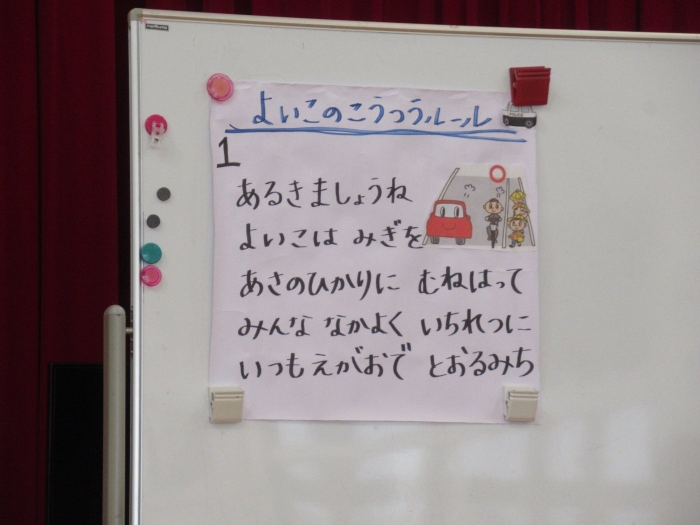 よいこのこうつうルール
1
あるきましょうね
よいこは みぎを
あさのひかりに むねはって
みんな なかよく いちれつに
いつも えがおで とおるみち